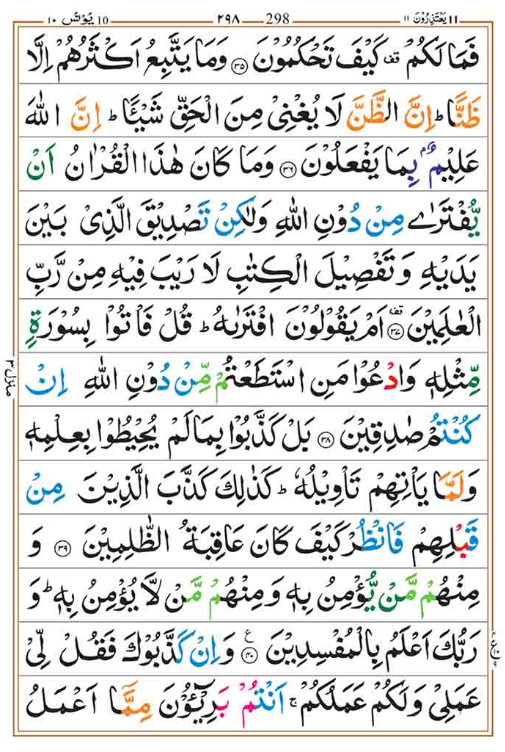 يَعْتَذِرُوْنَ ١١ 11 298 ٢٩٨ يُوْنُس ١٠ 10
فَمَا لَكُمْ قف كَيْفَ تَحْكُمُوْنَ ﴿۳۵﴾ وَمَا يَتَّبِعُ اَكْثَرُهُمْ اِلَّا
ظَنًّا ؕ اِنَّ الظَّنَّ لَا يُغْنِىْ مِنَ الْحَقِّ شَيْـًٔا ؕ اِنَّ اللّٰهَ
عَلِيْمٌۢ بِمَا يَفْعَلُوْنَ ﴿۳۶﴾ وَمَا كَانَ هٰذَا الْقُرْاٰنُ اَنْ
يُّفْتَرٰى مِنْ دُوْنِ اللّٰهِ وَلٰكِنْ تَصْدِيْقَ الَّذِىْ بَيْنَ
يَدَيْهِ وَتَفْصِيْلَ الْكِتٰبِ لَا رَيْبَ فِيْهِ مِنْ رَّبِّ
الْعٰلَمِيْنَ قف ﴿۳۷﴾ اَمْ يَقُوْلُوْنَ افْتَرٰىهُ ؕ قُلْ فَاْتُوْا بِسُوْرَةٍ
مِّثْلِهٖ وَادْعُوْا مَنِ اسْتَطَعْتُمْ مِّنْ دُوْنِ اللّٰهِ اِنْ
منزل ٣
كُنْتُمْ صٰدِقِيْنَ ﴿۳۸﴾ بَلْ كَذَّبُوْا بِمَا لَمْ يُحِيْطُوْا بِعِلْمِهٖ
وَلَمَّا يَاْتِهِمْ تَاْوِيْلُهٗ ؕ كَذٰلِكَ كَذَّبَ الَّذِيْنَ مِنْ
قَبْلِهِمْ فَانْظُرْ كَيْفَ كَانَ عَاقِبَةُ الظّٰلِمِيْنَ ﴿۳۹﴾ وَ
مِنْهُمْ مَّنْ يُّؤْمِنُ بِهٖ وَمِنْهُمْ مَّنْ لَّا يُؤْمِنُ بِهٖ ؕ وَ
رَبُّكَ اَعْلَمُ بِالْمُفْسِدِيْنَ ع ﴿۴۰﴾ وَاِنْ كَذَّبُوْكَ فَقُلْ لِّىْ
عَمَلِىْ وَلَكُمْ عَمَلُكُمْ ۚ اَنْتُمْ بَرِيْٓـُٔوْنَ مِمَّاۤ اَعْمَلُ